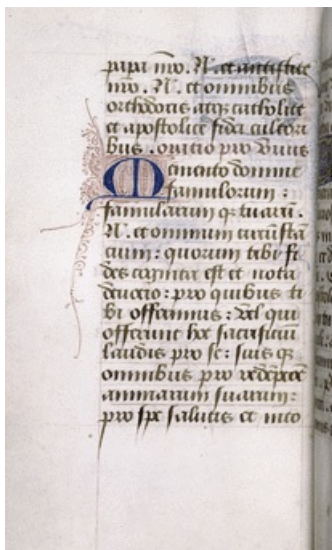 papa nr̃o. N̄. et antistite
nr̃o. N̄. et omnibus
orthodoxis atq; catholice
et apostolice fidei cultori
bus. oratio pro viuis
Memento domine
famulorum:
famularum q; tuarū.
N̄. et omnium circūstā
cium: quorum tibi fi
des cognita est et nota
deuocio: pro quibus ti
bi offerimus: vel qui
offerunt hoc sacrificiū
laudis pro se: suis q;
omnibus pro redēpcōe
animarum suarum:
pro spe salutis et inco